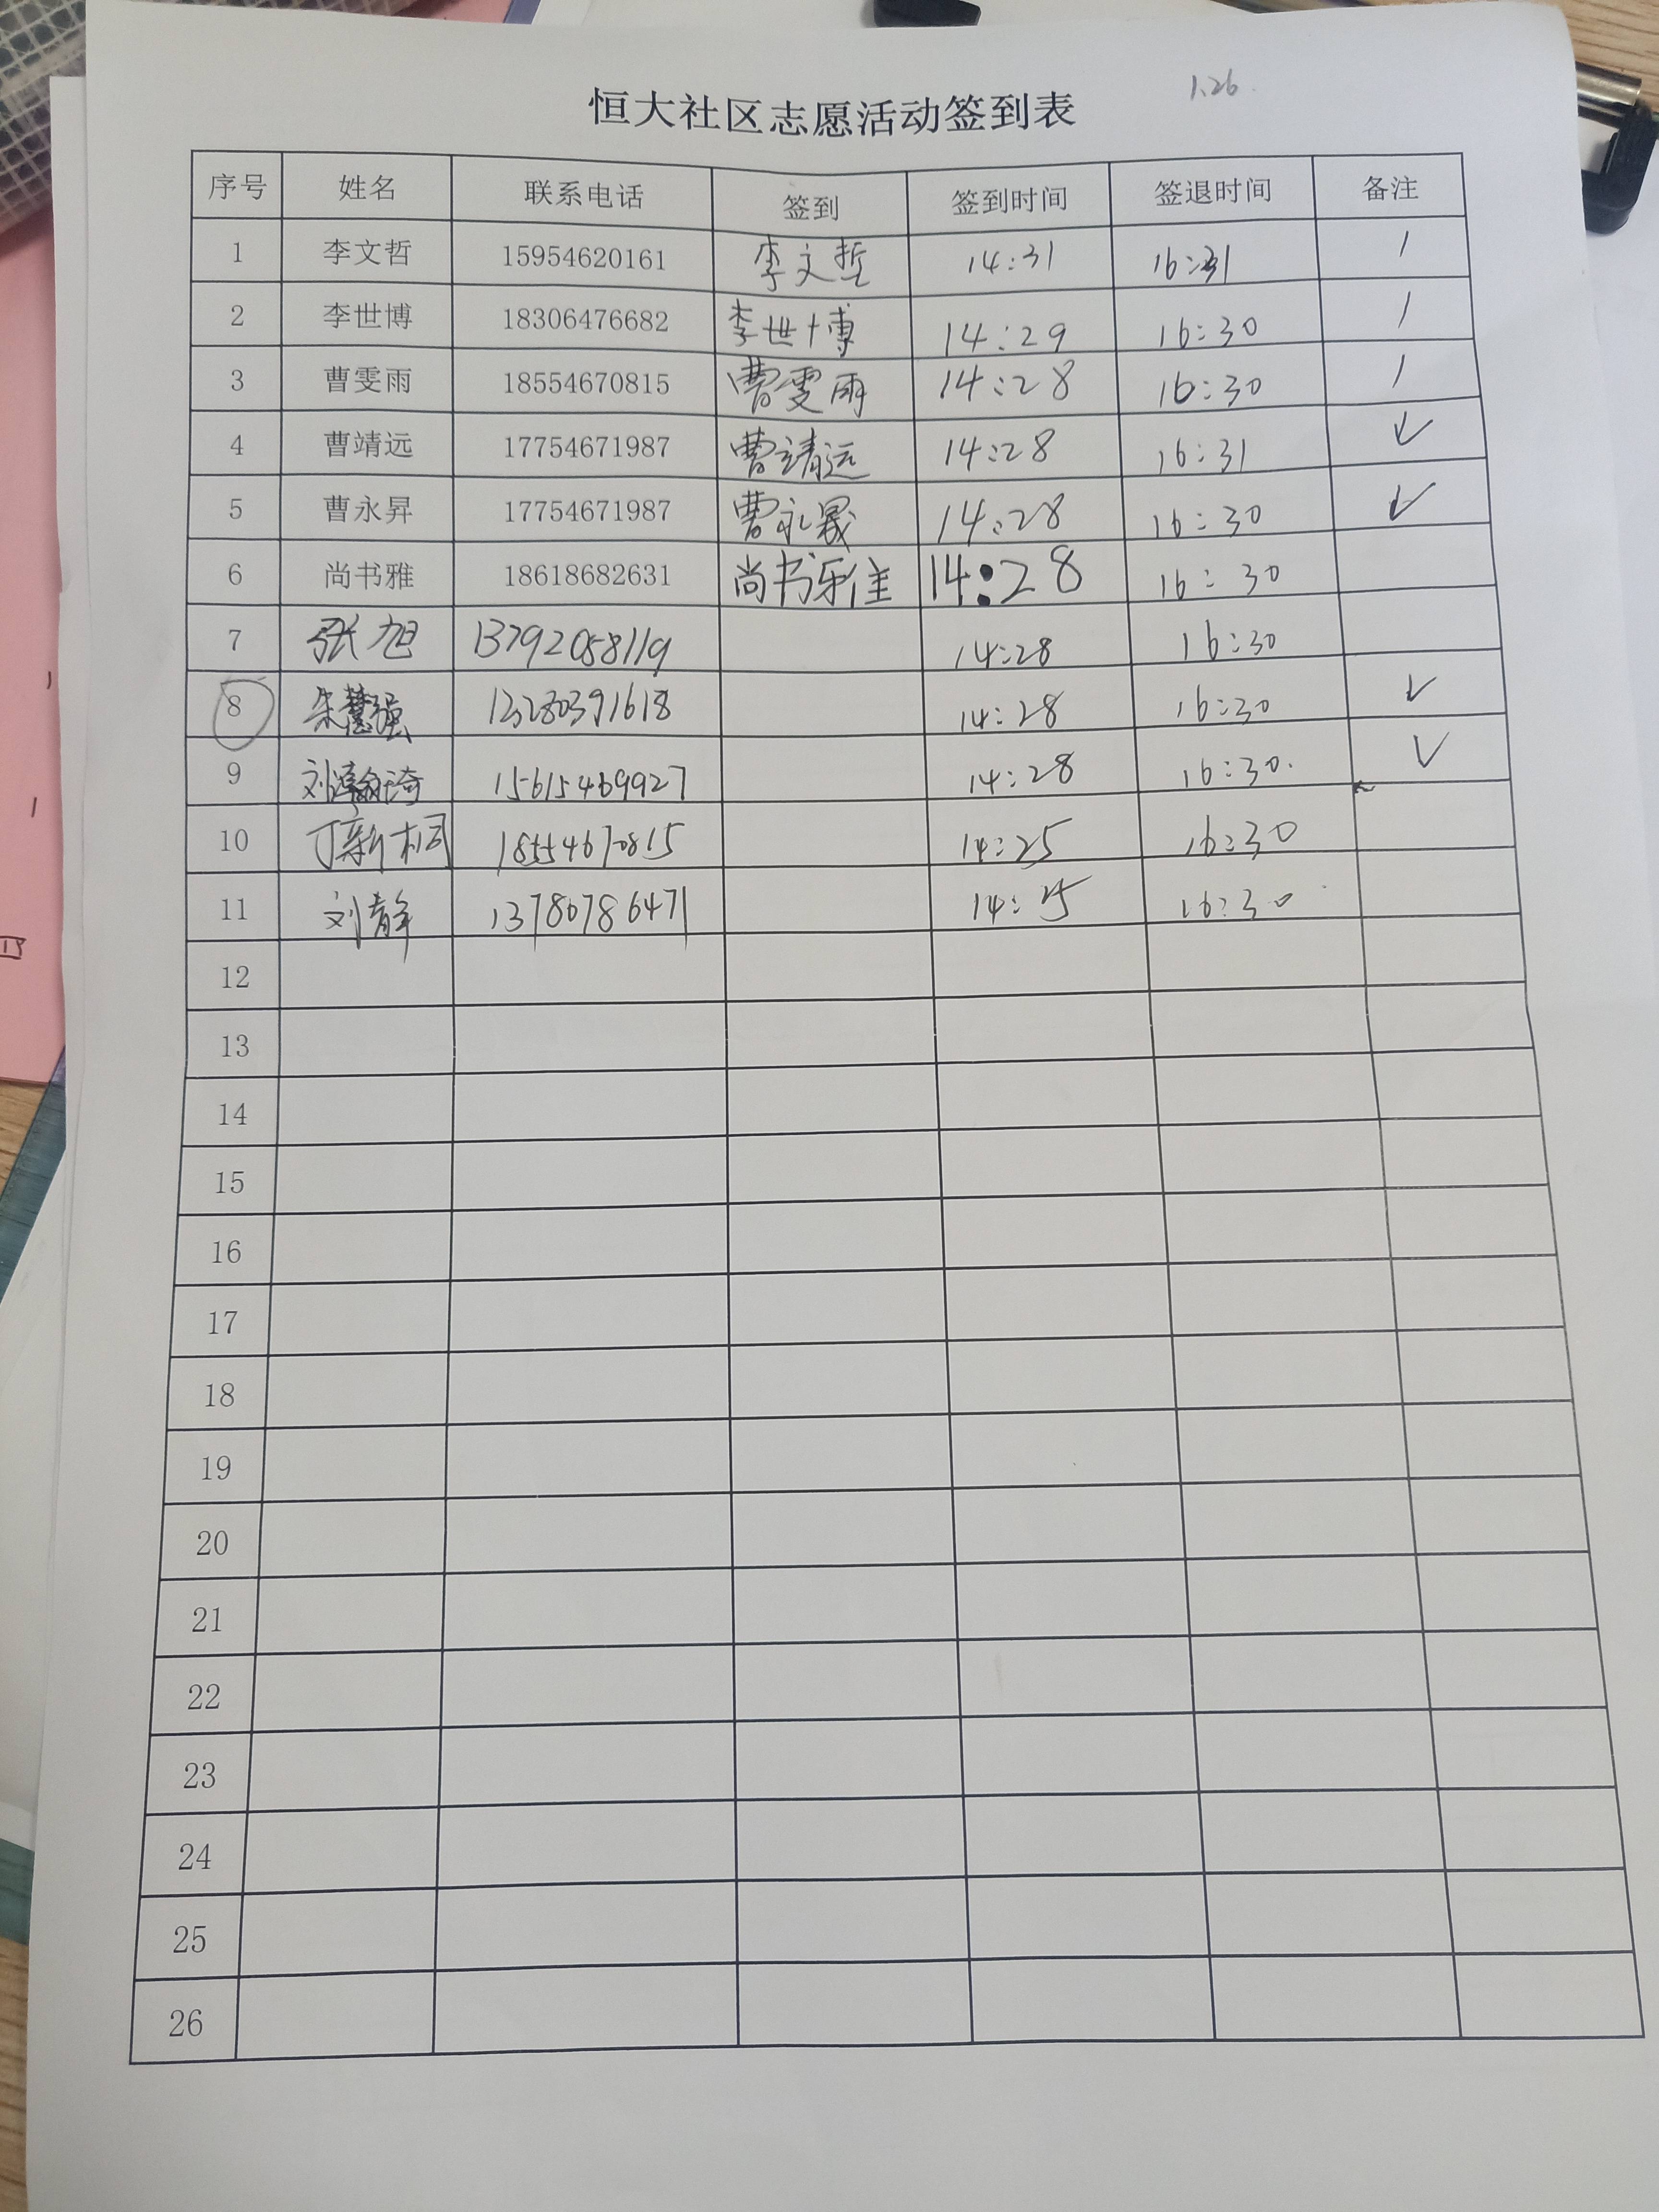 1.26
恒大社区志愿活动签到表
序号 姓名 联系电话 签到 签到时间 签退时间 备注
1 李文哲 15954620161 李文哲 14:31 16:31 /
2 李世博 18306476682 李世博 14:29 16:30 /
3 曹雯雨 18554670815 曹雯雨 14:28 16:30 /
4 曹靖远 17754671987 曹靖远 14:28 16:31 ✓
5 曹永昇 17754671987 曹永晟 14:28 16:30 ✓
6 尚书雅 18618682631 尚书雅 14:28 16:30
7 张旭 13792058119 14:28 16:30
8 13280391618 14:28 16:30 ✓
9 刘瀚琦 15615469927 14:28 16:30. ✓
10 丁新桐 18554670815 14:25 16:30
11 刘静 13780786471 14:25 16:30
12
13
14
15
16
17
18
19
20
21
22
23
24
25
26